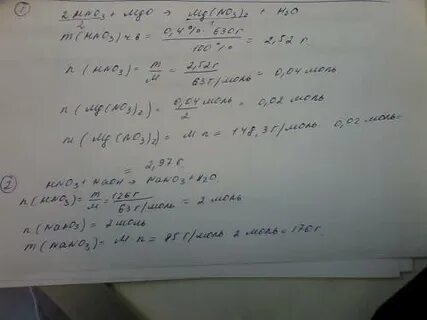 1
2HNO3 + MgO → Mg(NO3)2 + H2O
2 1
m(HNO3)ч.в = 0,4% · 630г / 100% = 2,52 г.
n(HNO3) = m/M = 2,52г / 63г/моль = 0,04 моль
n(Mg(NO3)2) = 0,04 моль / 2 = 0,02 моль
m(Mg(NO3)2) = M·n = 148,3г/моль · 0,02 моль =
= 2,97г.
2
HNO3 + NaOH → NaNO3 + H2O.
n(HNO3) = m/M = 126г / 63г/моль = 2 моль
n(NaNO3) = 2 моль
m(NaNO3) = M·n = 85г/моль · 2 моль = 170г.